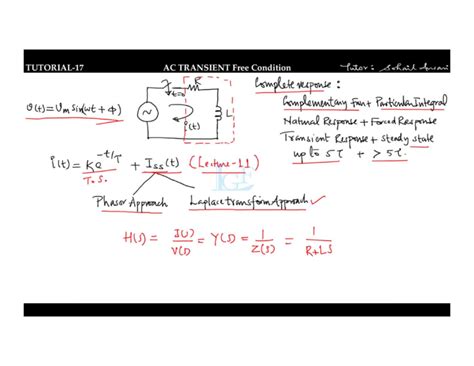 TUTORIAL-17 AC TRANSIENT Free Condition Tutor: Sohail Ansari
R
t=0
L
i(t)
v(t)= Vm sin(ωt + φ)
Complete response:
Complementary Fun + Particular Integral
Natural Response + Forced Response
Transient Response + Steady state
upto 5τ + > 5τ
i(t) = K e^-t/τ + Iss(t) (Lecture-11)
T.S.
Phasor Approach Laplace transform Approach ✓
H(s) = I(s)/V(s) = Y(s) = 1/Z(s) = 1/R+LS